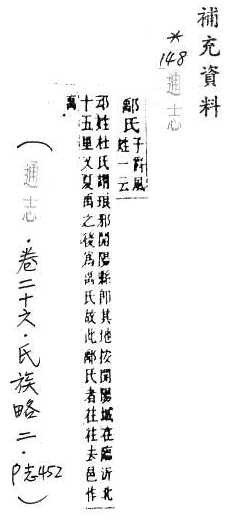 補充資料
*148 通志
鄅氏 子爵風
姓一云
邳姓杜氏謂琅邪開陽縣即其地按開陽城在臨沂北
十五里又夏禹之後爲禹氏故此鄅氏者往往去邑作
禹
(通志·卷二十六·氏族略二·P志452)